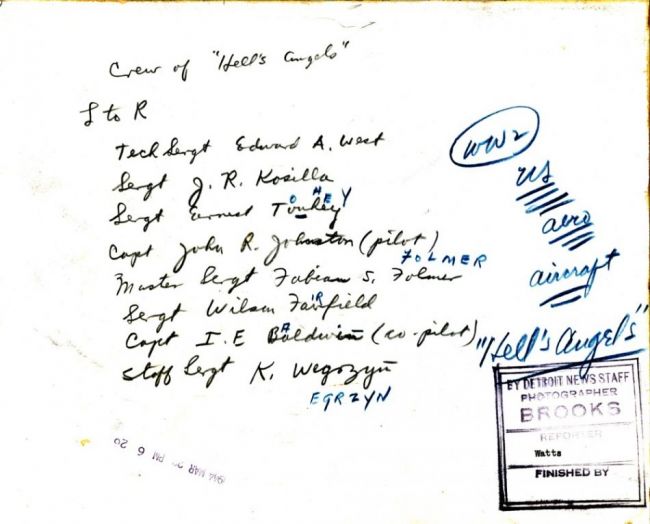 Crew of "Hell's Angels"
L to R
Tech Sergt Edward A. West
Sergt J. R. Kosilla
Sergt Earnest Touhey
O HEY
Capt John R. Johnston (pilot)
FOLMER
Master Sergt Fabian S. Folmer
Sergt Wilson Fairfield
R
Capt I. E Baldwin (co-pilot)
A
Staff Sergt K. Wegozyn
EGRZYN
WW2
US
aero
aircraft
"Hell's Angels"
BY DETROIT NEWS STAFF
PHOTOGRAPHER
BROOKS
REPORTER
Watts
FINISHED BY
MAR PM 6 20